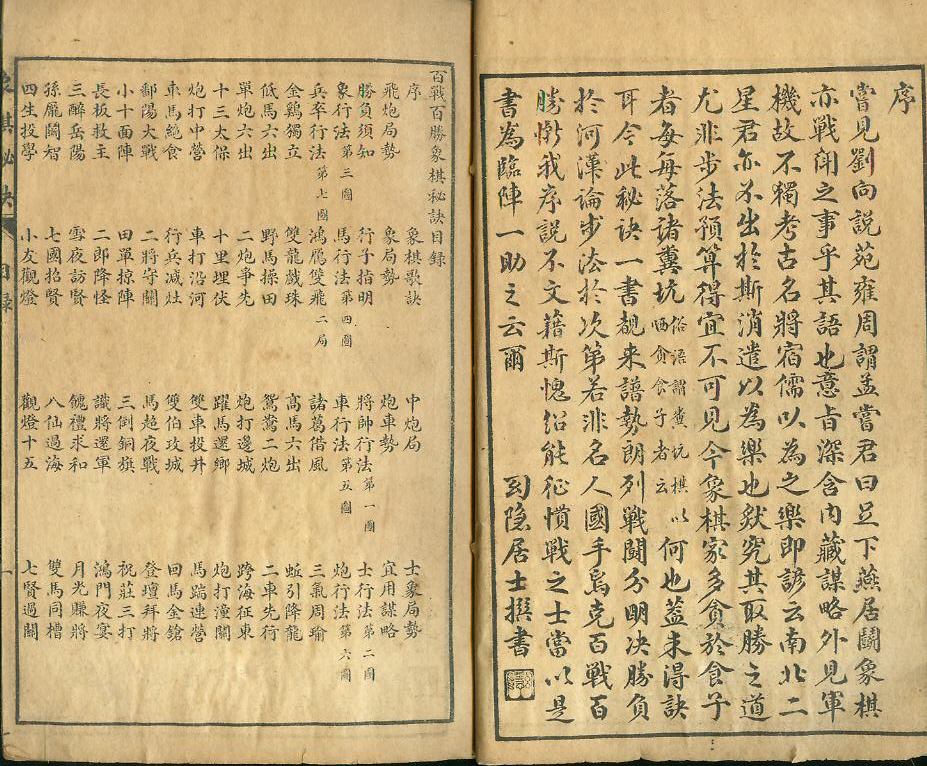 序
嘗見劉向說苑雍周謂孟嘗君曰足下燕居鬭象棋
亦戰鬭之事乎其語也意旨深含內藏謀略外見軍
機故不獨考古名將宿儒以為之樂即諺云南北二
星君亦不出於斯消遣以為樂也然究其取勝之道
尤非步法預算得宜不可見今象棋家多貪於食子
者每每落諸糞坑俗語謂糞坑棋晒貪食子者云以何也蓋未得訣
耳今此秘訣一書覩来譜勢朗列戰鬭分明决勝負
於河漢論步法於次第若非名人國手焉克百戰百
勝慚我序說不文藉斯愧俗能征慣戰之士當以是
書為臨陣一助之云爾
隐居士撰書
百戰百勝象棋秘訣目錄
序 象棋歌訣 中炮局 士象局勢
飛炮局勢 象局勢 炮車勢 宜用謀略
勝負須知 行子指明 將帥行法第一圖 士行法第二圖
象行法第三圖 馬行法第四圖 車行法第五圖 炮行法第六圖
兵卒行法第七圖 鴻雁雙飛二局 諸葛借風 三氣周瑜
金鷄獨立 雙龍戲珠 高馬六出 蚯引降龍
低馬六出 野馬操田 鴛鴦二炮 二車先行
單炮六出 二炮爭先 炮打邊城 跨海征東
十三太保 十里埋伏 躍馬還鄉 炮打潼關
炮打中營 車打沿河 雙車投井 馬踹連營
車馬絕食 行兵減灶 雙伯攻城 回馬金鎗
鄱陽大戰 二將守關 馬超夜戰 登壇拜將
小十面陣 田單掠陣 三倒銅旗 祝莊三打
長板救主 二郎降怪 識將還軍 鴻門夜宴
三醉岳陽 雪夜訪賢 餽禮求和 月光賺將
孫龐鬭智 七國招賢 八仙過海 雙馬同槽
四生投學 小友觀燈 觀燈十五 七賢過關
象棋秘訣 目錄 一